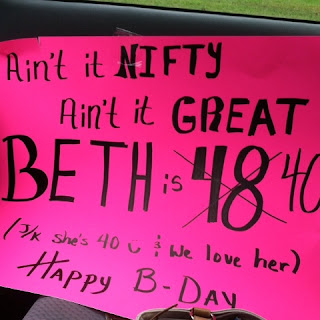 Ain't it NIFTY
Ain't it GREAT
BETH is 48 40
(J/K she's 40 ü & We love her)
HAPPY B-DAY